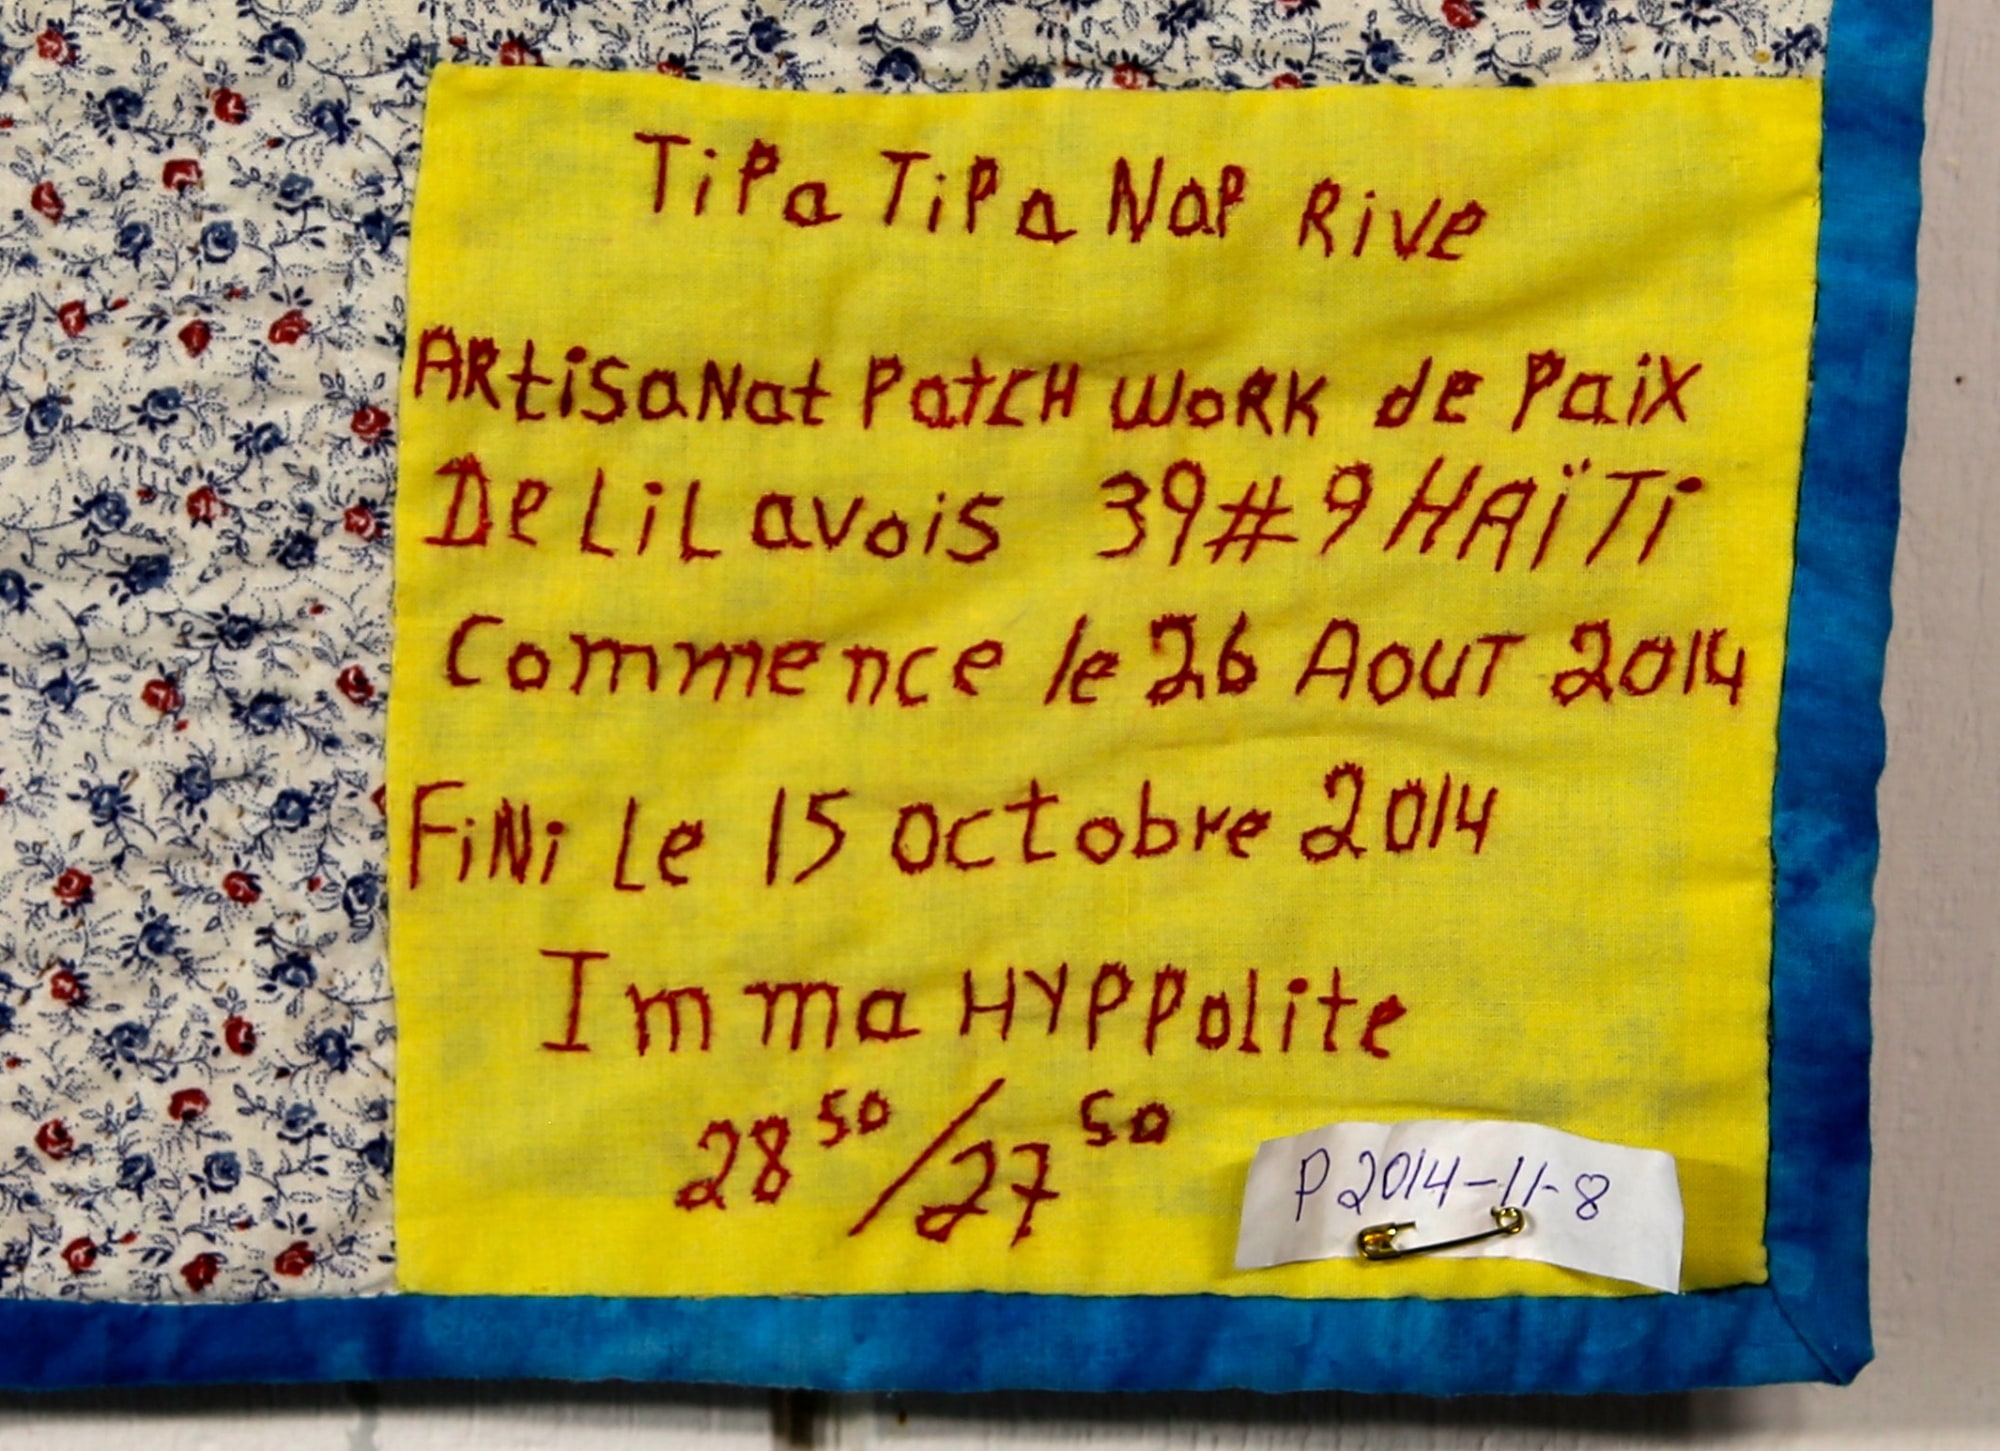 TiPa TiPa NaP Rive
ARtisaNat PatCH WoRK de Paix
De LiLavois 39#9 HAÏTi
Commence le 26 AouT 2014
FiNi Le 15 octobre 2014
Imma HYPPolite
28 50/27 50
P2014-11-8